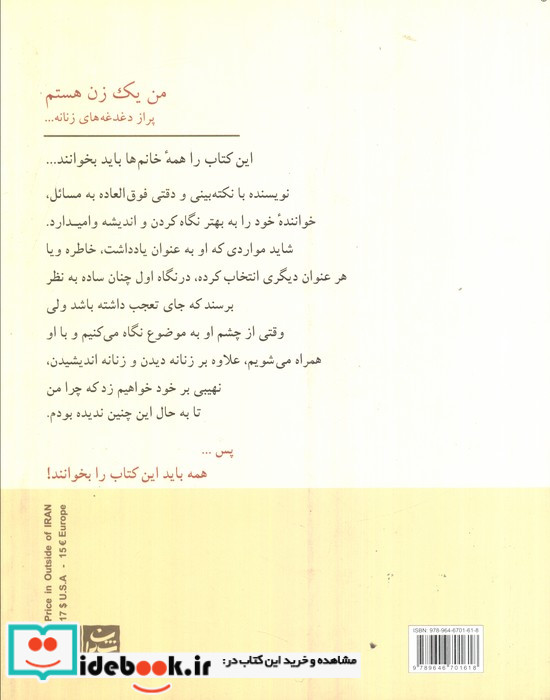 من یک زن هستم
پر از دغدغه‌های زنانه...
این کتاب را همهٔ خانم‌ها باید بخوانند...
نویسنده با نکته‌بینی و دقتی فوق‌العاده به مسائل،
خوانندهٔ خود را به بهتر نگاه کردن و اندیشه وامیدارد.
شاید مواردی که او به عنوان یادداشت، خاطره ویا
هر عنوان دیگری انتخاب کرده، درنگاه اول چنان ساده به نظر
برسند که جای تعجب داشته باشد ولی
وقتی از چشم او به موضوع نگاه می‌کنیم و با او
همراه می‌شویم، علاوه بر زنانه دیدن و زنانه اندیشیدن،
نهیبی بر خود خواهیم زد که چرا من
تا به حال این چنین ندیده بودم.
پس ...
همه باید این کتاب را بخوانند!
Price in Outside of IRAN
17 $ U.S.A - 15 € Europe
ISBN: 978-964-6701-61-8
9789646701618
idebook.ir
مشاهده و خرید این کتاب در: